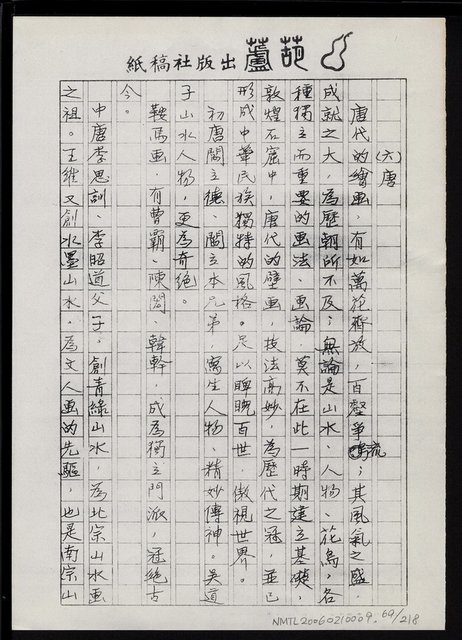 紙稿社版出蘆葩
(六)唐
唐代的繪画,有如萬花齊放,百壑爭流;其風氣之盛,
成就之大,為歷朝所不及;無論是山水、人物、花鳥,各
種獨立而重要的画法、画論,莫不在此一時期建立基礎,
敦煌石窟中,唐代的壁画,技法高妙,為歷代之冠,並已
形成中華民族獨特的風格。足以睥睨百世,傲視世界。
初唐閻立德、閻立本兄弟,寫生人物、精妙傳神。吳道
子山水人物,更為奇絕。
鞍馬画,有曹霸、陳閎、韓幹,成為獨立門派,冠絕古
今。
中唐李思訓、李昭道父子,創青綠山水,為北宗山水画
之祖。王維又創水墨山水,為文人画的先驅,也是南宗山
NMTL20060210009. 69/218